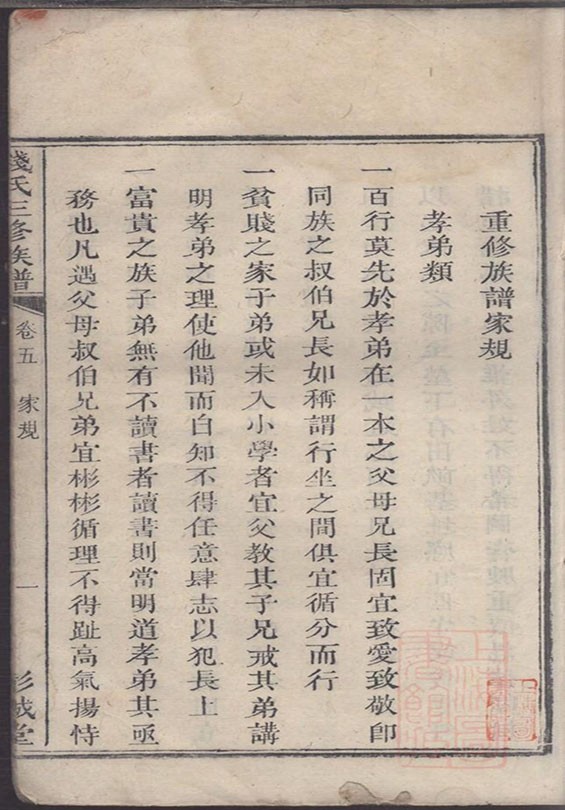 重修族譜家規
孝弟類
一百行莫先於孝弟在一本之父母兄長固宜致愛致敬即
同族之叔伯兄長如稱謂行坐之間俱宜循分而行
一貧賤之家子弟或未入小學者宜父教其子兄戒其弟講
明孝弟之理使他聞而自知不得任意肆志以犯長上
一富貴之族子弟無有不讀書者讀書則當明道孝弟其亟
務也凡遇父母叔伯兄弟宜彬彬循理不得趾高氣揚恃
錢氏三修族譜 卷五 家規 一 彭城堂